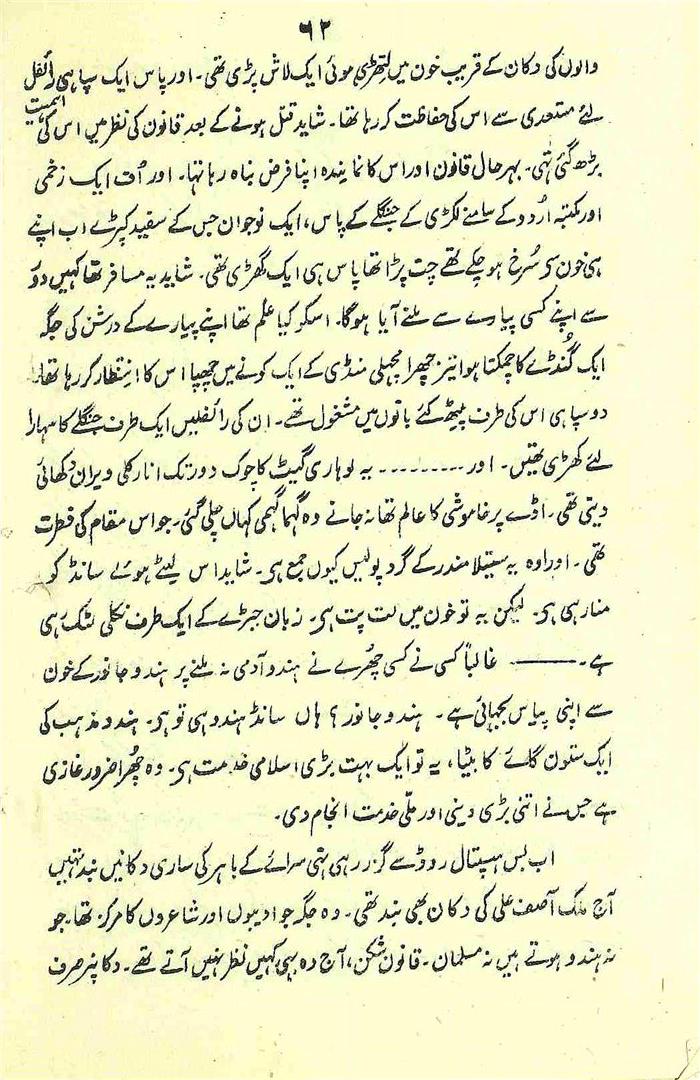 ۶۲
والوں کی دکان کے قریب خون میں لتھڑی ہوئی ایک لاش پڑی تھی۔ اور پاس ایک سپاہی رائفل
لئے مستعدی سے اس کی حفاظت کر رہا تھا۔ شاید قتل ہونے کے بعد قانون کی نظر میں اس کی اہمیت
بڑھ گئی تھی۔ بہر حال قانون اور اس کا نمایندہ اپنا فرض نباہ رہا تھا۔ اور اُف ایک زخمی
اور مکتبہ اردو کے سامنے لکڑی کے جنگلے کے پاس، ایک نوجوان جس کے سفید کپڑے اب اپنے
ہی خون سے سُرخ ہو چکے تھے چت پڑا تھا پاس ہی ایک گٹھڑی تھی۔ شاید یہ مسافر تھا کہیں دور
سے اپنے کسی پیارے سے ملنے آیا ہوگا۔ اسکو کیا علم تھا اپنے پیارے کے درشن کی جگہ
ایک گُنڈے کا چمکتا ہوا تیز چھرا مچھلی منڈی کے ایک کونے میں چھپا اس کا انتظار کر رہا تھا۔
دو سپاہی اس کی طرف پیٹھ کئے باتوں میں مشغول تھے۔ ان کی رائفلیں ایک طرف جنگلے کا سہارا
لئے کھڑی تھیں۔ اور ۔۔۔۔۔۔۔۔۔ یہ لوہاری گیٹ کا چوک دور تک انار کلی ویران دکھائی
دیتی تھی۔ اڈے پر خاموشی کا عالم تھا نہ جانے وہ گہما گہمی کہاں چلی گئی۔ جو اس مقام کی فطرت
تھی۔ اور اوہ یہ سیتلا مندر کے گرد پولیس کیوں جمع ہے۔ شاید اس لیٹے ہوئے سانڈ کو
منا رہی ہے۔ لیکن یہ تو خون میں لت پت ہے۔ زبان جبڑے کے ایک طرف نکلی لٹک رہی
ہے۔ ——— غالباً کسی نے کسی چھُرے نے ہندو آدمی نہ ملنے پر ہندو جانور کے خون
سے اپنی پیاس بجھائی ہے۔ ہندو جانور؟ ہاں سانڈ ہندو ہی تو ہے۔ ہندو مذہب کی
ایک ستون گائے کا بیٹا، یہ تو ایک بہت بڑی اسلامی خدمت ہے۔ وہ چھُرا ضرور غازی
ہے جس نے اتنی بڑی دینی اور ملّی خدمت انجام دی۔
اب بس ہسپتال روڈ سے گزر رہی تھی سرائے کے باہر کی ساری دکانیں بند تھیں
آج ملک آصف علی کی دکان بھی بند تھی۔ وہ جگہ جو ادیبوں اور شاعروں کا مرکز تھا۔ جو
نہ ہندو ہوتے ہیں نہ مسلمان۔ قانون شکن، آج وہ بھی کہیں نظر نہیں آتے تھے۔ دکا نپر صرف